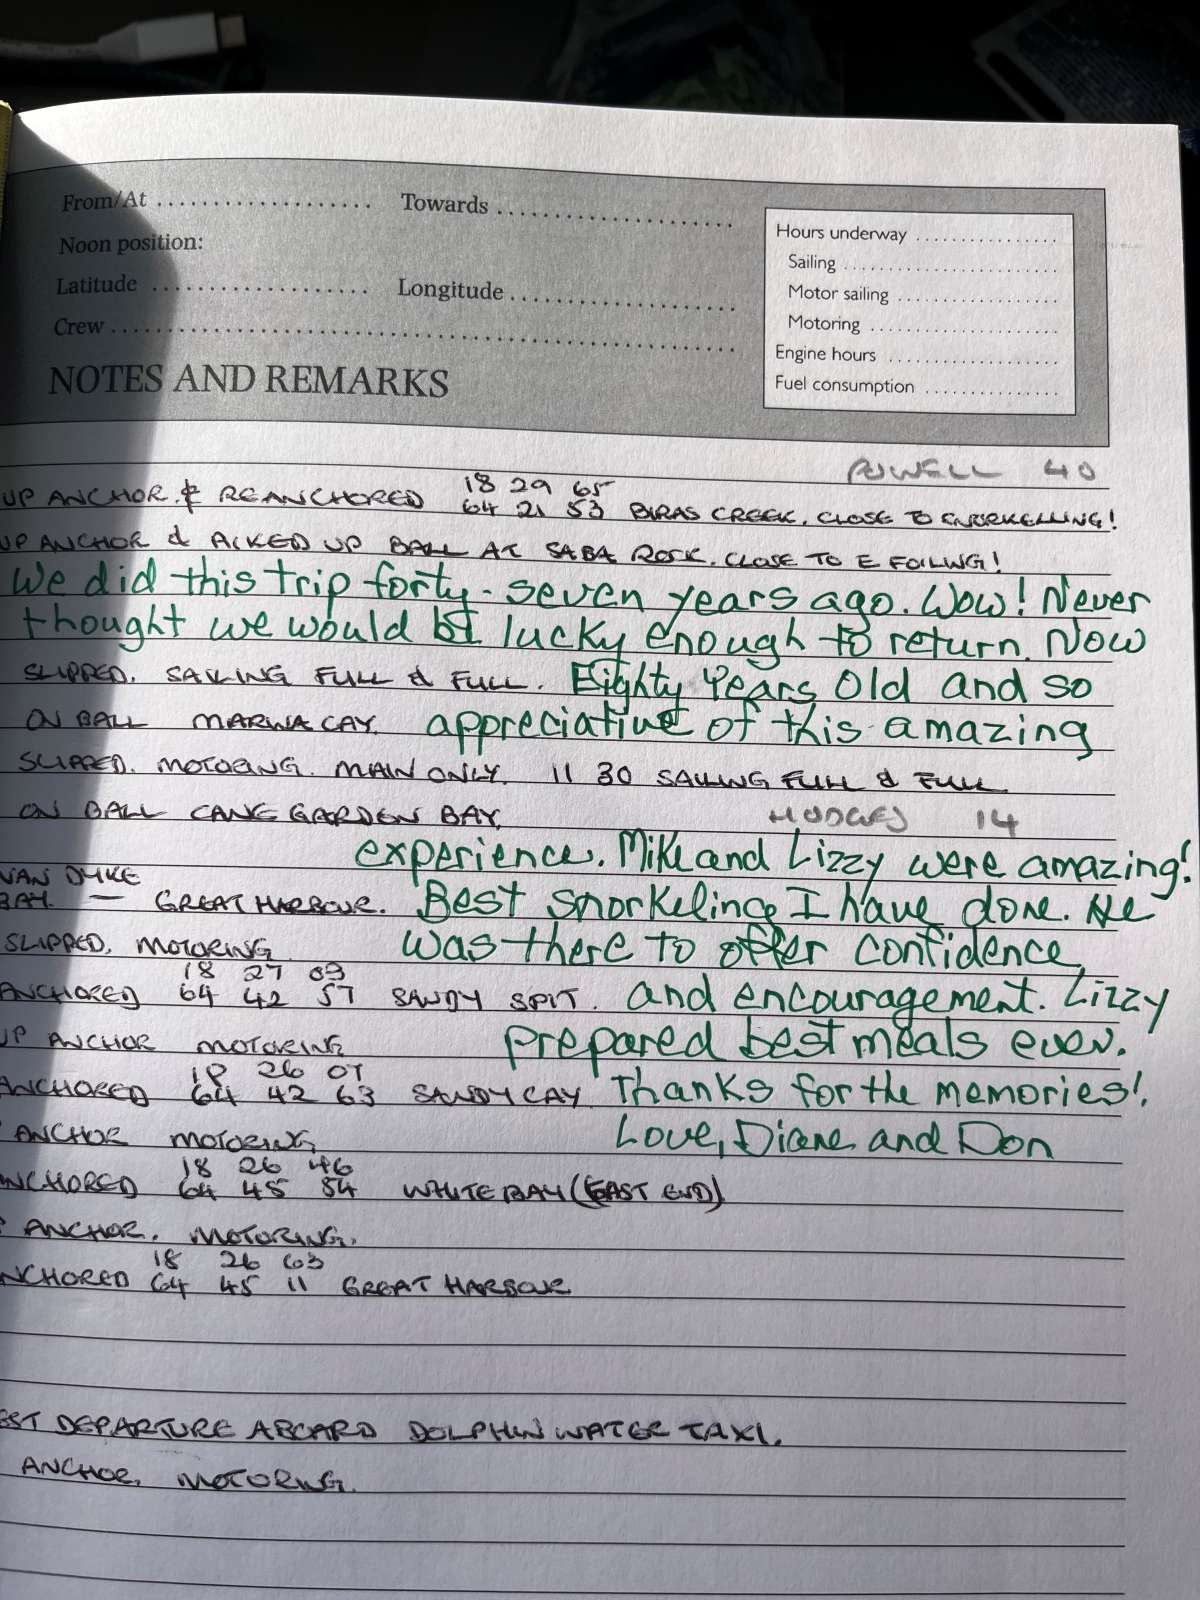 From/At ...................
Towards .......................
Noon position:
Latitude ..................
Longitude ......................
Crew ............................................................
NOTES AND REMARKS
Hours underway ................
Sailing ........................
Motor sailing ..................
Motoring .....................
Engine hours ...................
Fuel consumption ...............
POWELL 40
18 29 65
UP ANCHOR & REANCHORED 64 21 53 BIRAS CREEK. CLOSE TO SNORKELLING!
UP ANCHOR & PICKED UP BALL AT SABA ROCK. CLOSE TO E FOILING!
We did this trip forty-seven years ago. Wow! Never
thought we would be lucky enough to return. Now
SLIPPED. SAILING FULL & FULL. Eighty Years Old and so
ON BALL MARINA CAY. appreciative of this amazing
SLIPPED. MOTORING. MAIN ONLY. 11 30 SAILING FULL & FULL
ON BALL CANE GARDEN BAY. HODGES 14
experience. Mike and Lizzy were amazing!
VAN DYKE
BAY. — GREAT HARBOUR. Best snorkeling I have done. He
SLIPPED. MOTORING was there to offer confidence
18 27 03
ANCHORED 64 42 57 SANDY SPIT. and encouragement. Lizzy
UP ANCHOR MOTORING prepared best meals ever.
18 26 07
ANCHORED 64 42 63 SANDY CAY Thanks for the memories!
ANCHOR MOTORING Love, Diane and Don
18 26 46
NCHORED 64 45 54 WHITE BAY (EAST END)
ANCHOR. MOTORING.
18 26 63
NCHORED 64 45 11 GREAT HARBOUR
EST DEPARTURE ABOARD DOLPHIN WATER TAXI.
ANCHOR. MOTORING.